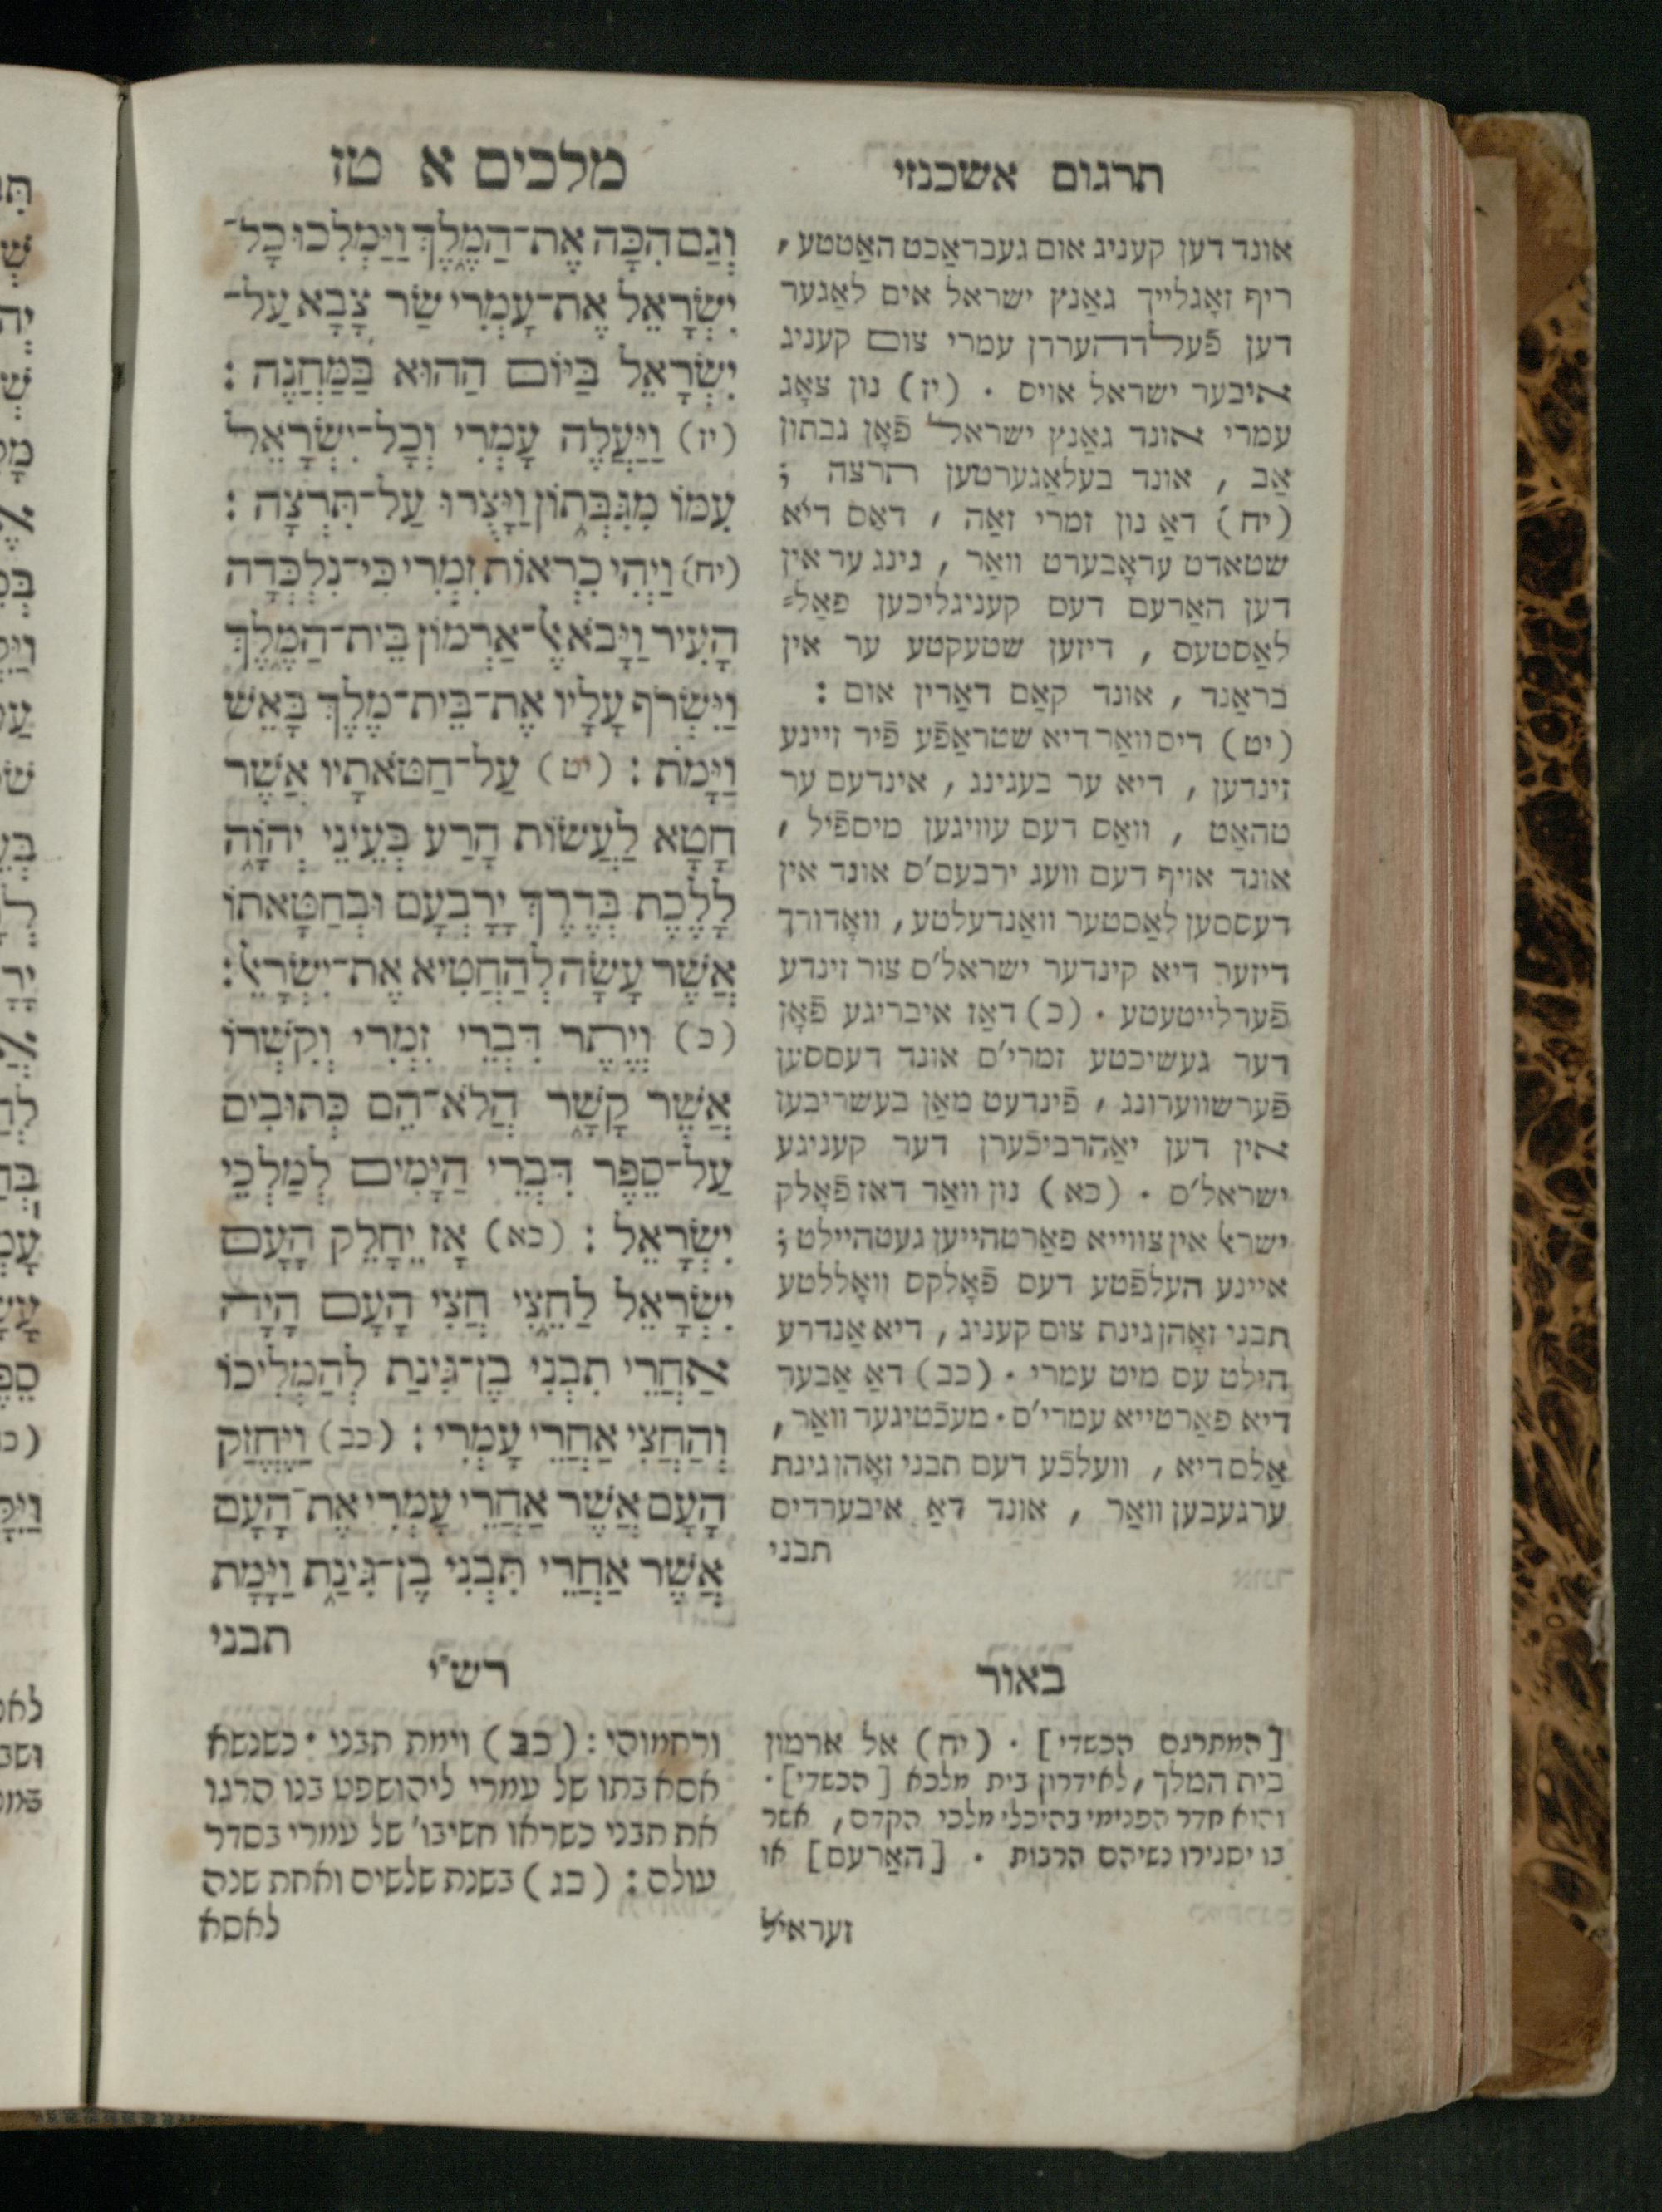 תרגום אשכנזי
אונד דען קעניג אום געבראַכט האַטטע,
ריף זאָגלייך גאַנץ ישראל אים לאַגער
דען פֿעלדהעררן עמרי צום קעניג
איבער ישראל אויס . (יז) נון צאָג
עמרי אונד גאַנץ ישראל פֿאָן גבתון
אַב , אונד בעלאַגערטען תרצה ;
(יח) דאַ נון זמרי זאַה , דאַס דיא
שטאדט עראָבערט וואַר , גינג ער אין
דען האַרעם דעס קעניגליכען פאַל=
לאַסטעס , דיזען שטעקטע ער אין
בראַנד , אונד קאַם דאַרין אום :
(יט) דיס וואַר דיא שטראַפֿע פֿיר זיינע
זינדען , דיא ער בעגינג , אינדעם ער
טהאַט , וואַס דעם עוויגען מיספֿיל ,
אונד אויף דעם וועג ירבעם'ס אונד אין
דעססען לאַסטער וואַנדעלטע, וואָדורך
דיזער דיא קינדער ישראל'ס צור זינדע
פֿערלייטעטע . (כ) דאַז איבריגע פֿאָן
דער געשיכטע זמרי'ס אונד דעססען
פֿערשווערונג , פֿינדעט מאַן בעשריבען
אין דען יאַהרביכֿערן דער קעניגע
ישראל'ס . (כא) נון וואַר דאז פֿאָלק
ישראל אין צווייא פאַרטהייען געטהיילט ;
איינע העלפֿטע דעס פֿאָלקס וואָללטע
תבני זאָהן גינת צום קעניג , דיא אַנדרע
הילט עס מיט עמרי . (כב) דאַ אַבער
דיא פאַרטייא עמרי'ס . מעכֿטיגער וואַר ,
אַלס דיא , וועלכֿע דעם תבני זאָהן גינת
ערגעבען וואַר , אונד דאַ איבערדיס
תבני
באור
[המתרגם הכשדי] . (יח) אל ארמון
בית המלך, לאידרון בית מלכא [הכשדי].
והוא חדר הפנימי בהיכלי מלכי הקדם, אשר
בו יסגירו נשיהם הרבות . [האַרעם] או
זעראיל
מלכים א טז
וְגַם הִכָּה אֶת־הַמֶּלֶךְ וַיַּמְלִכוּ כָל־
יִשְׂרָאֵל אֶת־עָמְרִי שַׂר צָבָא עַל־
יִשְׂרָאֵל בַּיּוֹם הַהוּא בַּמַּחֲנֶה :
(יז) וַיַּעֲלֶה עָמְרִי וְכָל־יִשְׂרָאֵל
עִמּוֹ מִגִּבְּתוֹן וַיָּצֻרוּ עַל־תִּרְצָה :
(יח) וַיְהִי כִּרְאוֹת זִמְרִי כִּי־נִלְכְּדָה
הָעִיר וַיָּבֹא אֶל־אַרְמוֹן בֵּית־הַמֶּלֶךְ
וַיִּשְׂרֹף עָלָיו אֶת־בֵּית־מֶלֶךְ בָּאֵשׁ
וַיָּמֹת : (יט) עַל־חַטֹּאתָיו אֲשֶׁר
חָטָא לַעֲשׂוֹת הָרַע בְּעֵינֵי יְהוָה
לָלֶכֶת בְּדֶרֶךְ יָרָבְעָם וּבְחַטָּאתוֹ
אֲשֶׁר עָשָׂה לְהַחֲטִיא אֶת־יִשְׂרָאֵל :
(כ) וְיֶתֶר דִּבְרֵי זִמְרִי וְקִשְׁרוֹ
אֲשֶׁר קָשָׁר הֲלֹא־הֵם כְּתוּבִים
עַל־סֵפֶר דִּבְרֵי הַיָּמִים לְמַלְכֵי
יִשְׂרָאֵל : (כא) אָז יֵחָלֵק הָעָם
יִשְׂרָאֵל לַחֵצִי חֲצִי הָעָם הָיָה
אַחֲרֵי תִבְנִי בֶן־גִּינַת לְהַמְלִיכוֹ
וְהַחֲצִי אַחֲרֵי עָמְרִי : (כב) וַיֶּחֱזַק
הָעָם אֲשֶׁר אַחֲרֵי עָמְרִי אֶת־הָעָם
אֲשֶׁר אַחֲרֵי תִּבְנִי בֶן־גִּינַת וַיָּמָת
תבני
רש"י
ורחמוהי : (כב) וימת תבני . כשנשא
אסא בתו של עמרי ליהושפט בנו הרגו
את תבני כשראו חשיבו' של עמרי בסדר
עולם : (כג) בשנת שלשים ואחת שנה
לאסא